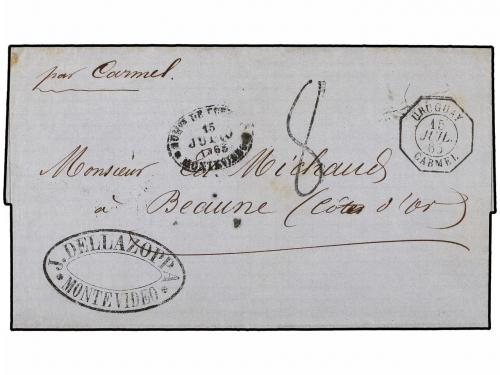 par Carmel.
15
JULIO
MONTEVIDEO
8
URUGUAY
15
JUIL.
CARMEL
Monsieur Michaud
à Beaune (Côte d'Or)
J. DELLAZOPPA
MONTEVIDEO